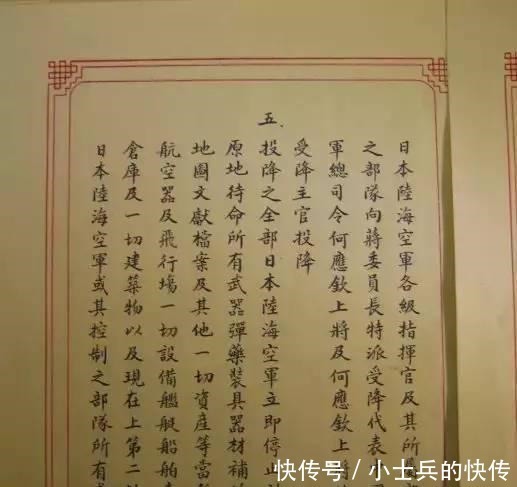 日本陸海空軍各級指揮官及其所屬
之部隊向蔣委員長特派受降代表中
軍總司令何應欽上將及何應欽上將
受降主官投降
五、
投降之全部日本陸海空軍立即停止
原地待命所有武器彈藥裝具器材補給
地圖文獻檔案及其他一切資產等當
航空器及飛行場一切設備艦艇船舶
倉庫及一切建築物以及現在上第二
日本陸海空軍或其控制之部隊所有
快传号/小士兵的快传